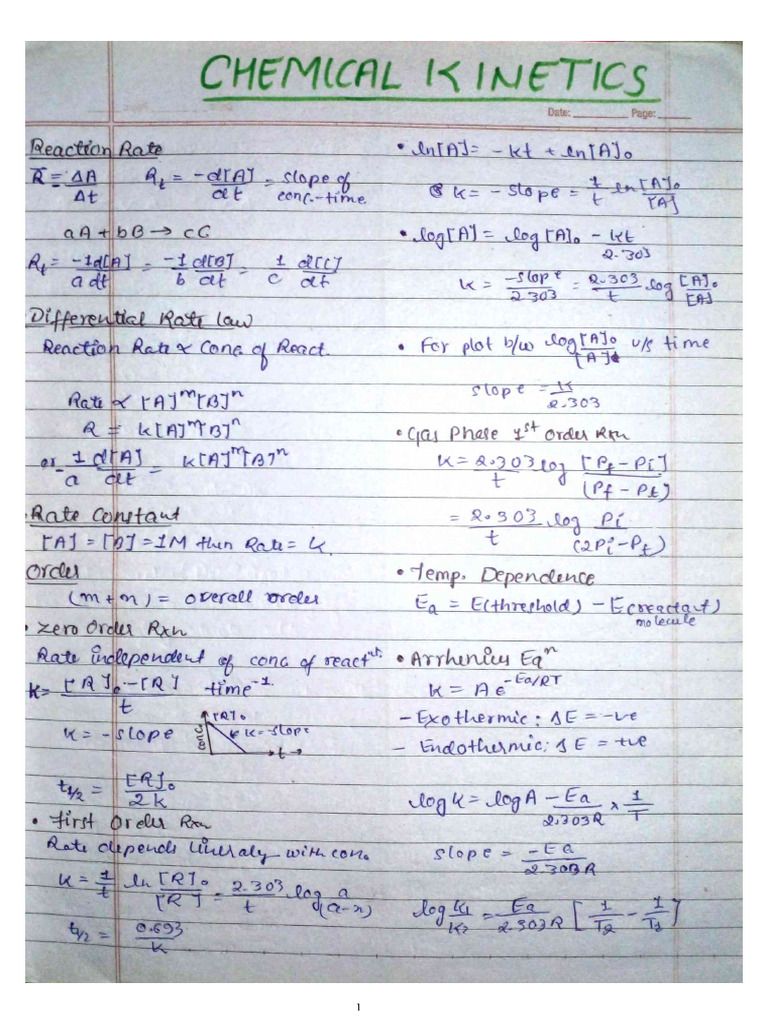 CHEMICAL KINETICS
Date: Page:
Reaction Rate
R̅ = ΔA/Δt  R_t = -d[A]/dt = slope of conc.-time
aA + bB → cC
R_t = -1d[A]/a dt = -1 d[B]/b dt = 1 d[C]/c dt
Differential Rate law
Reaction Rate ∝ Conc of React.
Rate ∝ [A]^m[B]^n
R = k[A]^m[B]^n
or -1 d[A]/a dt = k[A]^m[B]^n
Rate Constant
[A] = [B] = 1M then Rate = K.
Order
(m+n) = overall order
• Zero Order Rxn
Rate independent of conc of react^nt.
k = [R]₀ - [R]/t time⁻¹
k = -slope
[R]₀
conc.
k = -slope
t →
t_1/2 = [R]₀/2k
• First Order Rxn
Rate depends lineraly with con.
k = 1/t ln [R]₀/[R] = 2.303/t log a/(a-x)
t_1/2 = 0.693/k
• ln[A] = -kt + ln[A]₀
k = -slope = 1/t ln [A]₀/[A]
• log[A] = log[A]₀ - kt/2.303
k = -slope/2.303 = 2.303/t log [A]₀/[A]
• For plot b/w log [A]₀/[A]t v/s time
slope = k/2.303
• Gas Phase 1st Order Rxn
k = 2.303/t log [P_f - P_i]/(P_f - P_t)
= 2.303/t log P_i/(2P_i - P_t)
• Temp. Dependence
E_a = E(threshold) - E(reactant)
molecule
• Arrhenius Eq^n
k = A e^-Ea/RT
- Exothermic: ΔE = -ve
- Endothermic: ΔE = +ve
log k = log A - Ea/2.303R × 1/T
slope = -Ea/2.303R
log K₁/K₂ = Ea/2.303R [1/T₂ - 1/T₁]
1